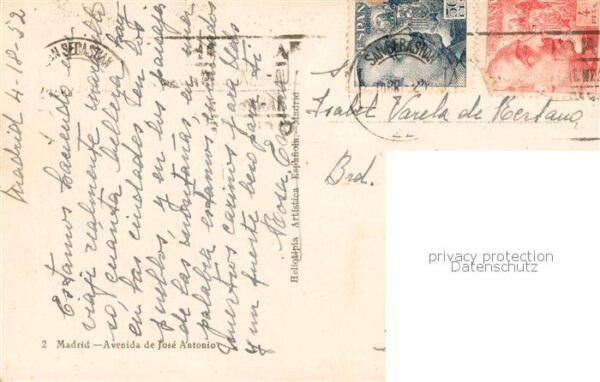 Madrid 4-18-52
Estamos haciendo un
viaje realmente maravillo
so, cuanta belleza hay
en las ciudades, en los
pueblos, y en los paisajes
de las montañas, en una
palabra estamos encantados
muertos cariños para
y un fuerte beso para ti
Rosa
Isabel Varela de
Brd.
SAN SEBASTIAN
SAN SEBASTIAN
ESPAÑA
50
ESPAÑA
4
PTS
Heliotipia Artística Española — Madrid
2 Madrid.—Avenida de José Antonio
privacy protection
Datenschutz